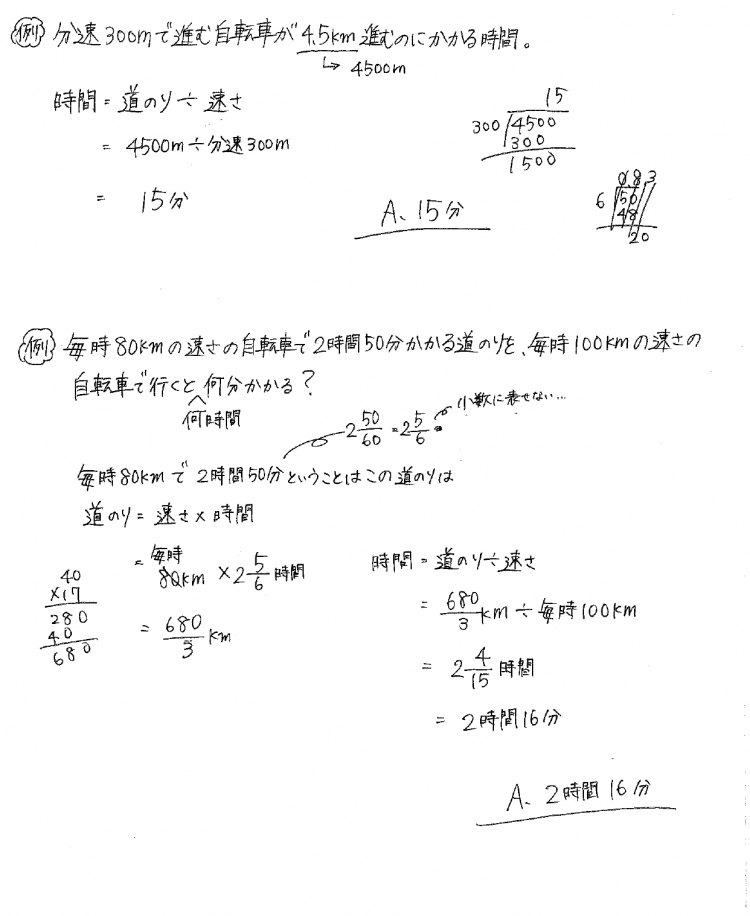 例 分速300mで進む自転車が4.5km進むのにかかる時間。
↳ 4500m
時間 = 道のり ÷ 速さ
= 4500m ÷ 分速300m
= 15分
15
300 4500
300
1500
A、15分
0.83
6 50
48
20
例 毎時80kmの速さの自転車で2時間50分かかる道のりを、毎時100kmの速さの
自転車で行くと何分かかる?
何時間
2 50/60 = 2 5/6
小数に表せない…
毎時80kmで2時間50分ということはこの道のりは
道のり = 速さ × 時間
= 毎時80km × 2 5/6 時間
= 680/3 km
40
×17
280
40
680
時間 = 道のり ÷ 速さ
= 680/3 km ÷ 毎時100km
= 2 4/15 時間
= 2時間16分
A、2時間16分